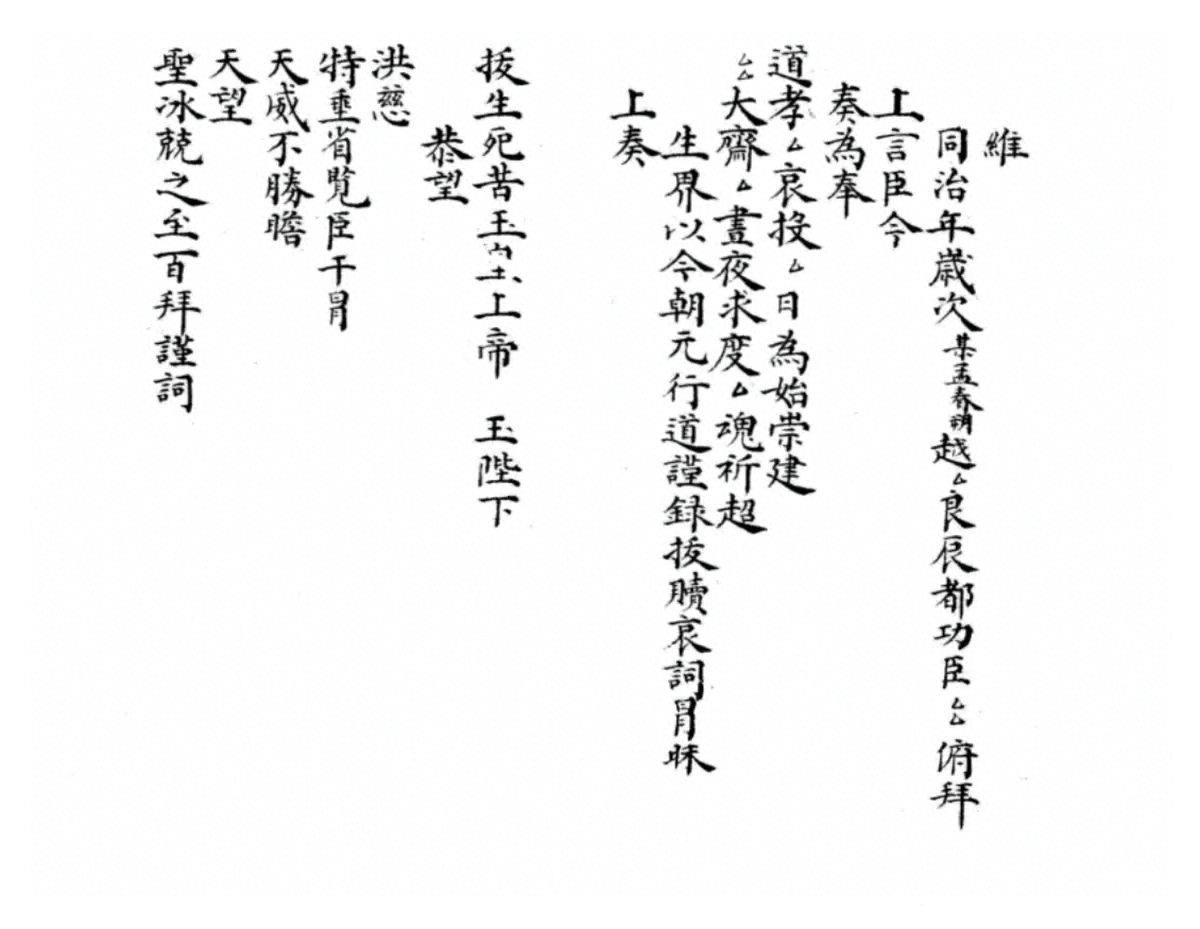 維
同治年歲次某孟春朔越厶良辰都功臣厶厶俯拜
上言臣今
奏為奉
道孝厶哀投厶日為始崇建
厶厶大齋厶晝夜求度厶魂祈超
生界以今朝元行道謹録拔贖哀詞冒昧
上奏
拔生死苦玉皇上帝 玉陛下
恭望
洪慈
特垂省覧臣干冒
天威不勝瞻
天望
聖冰兢之至百拜謹詞